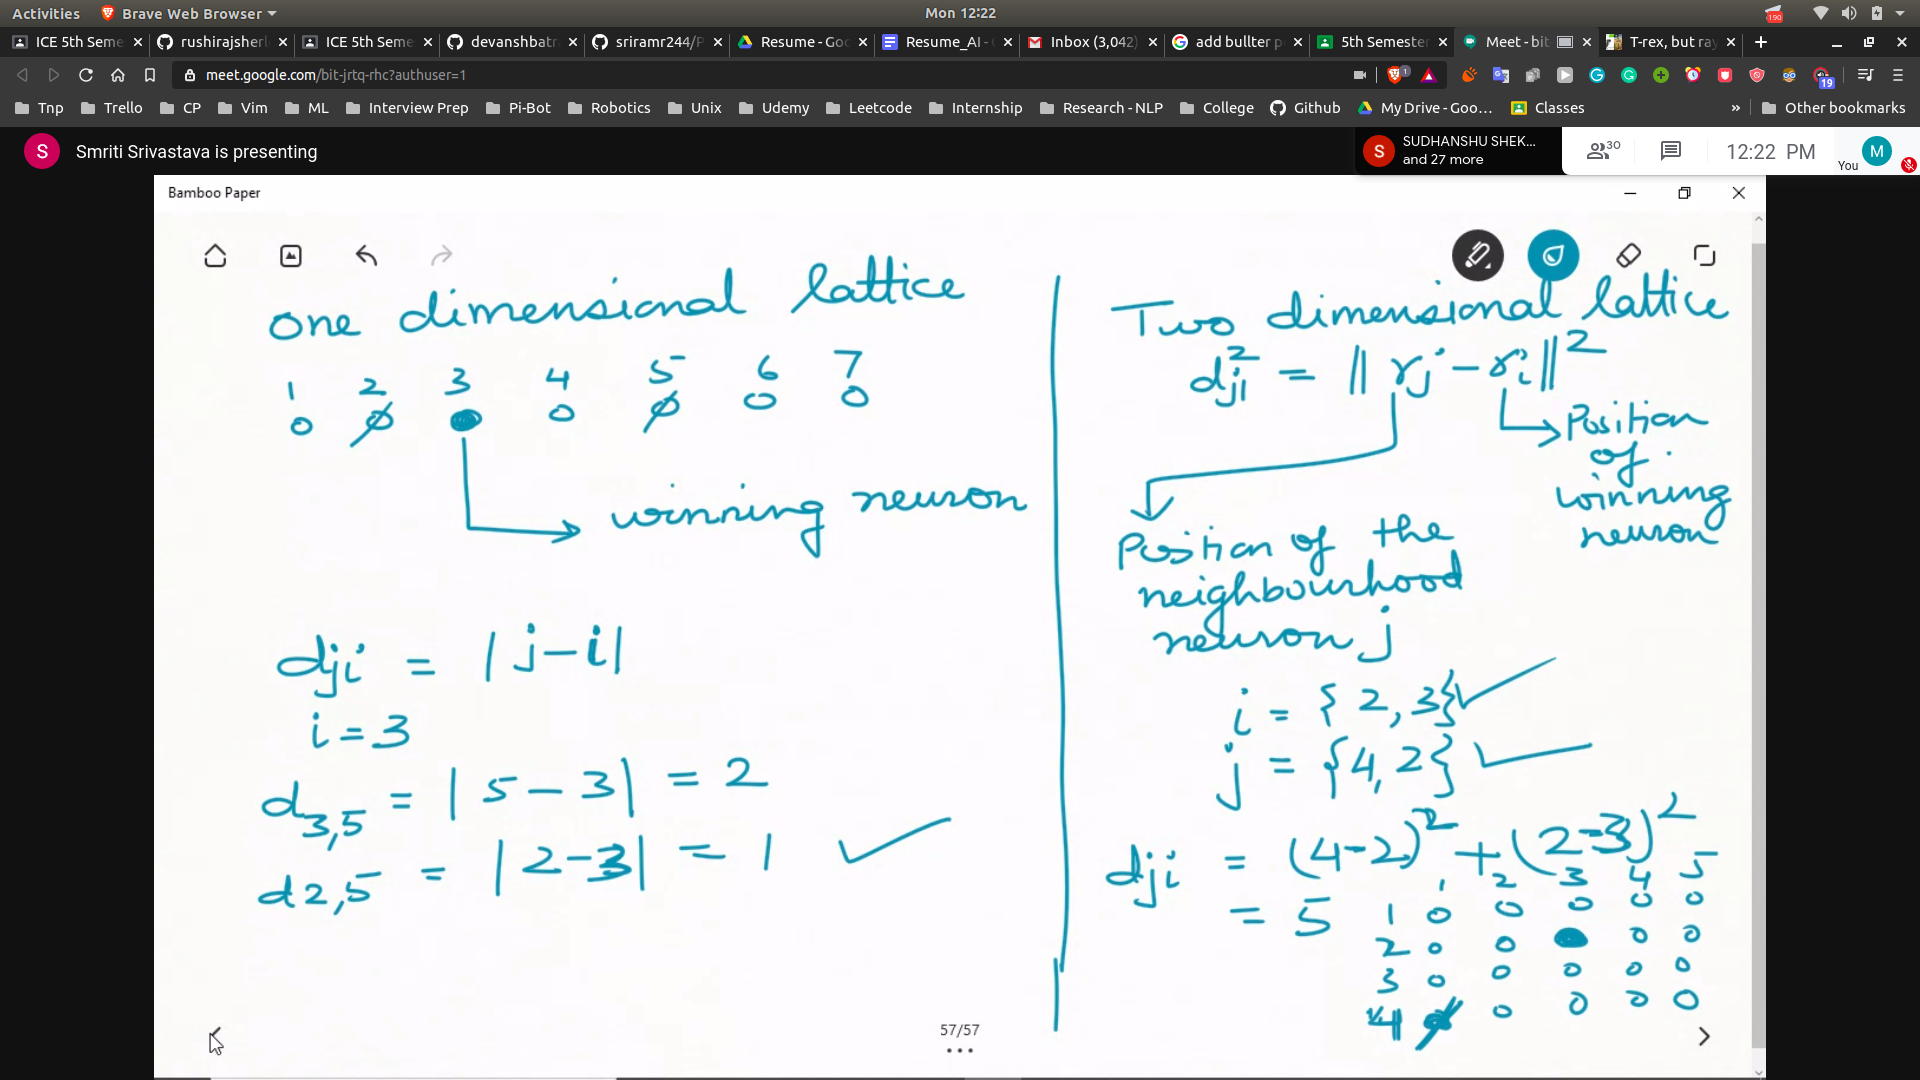 Activities Brave Web Browser Mon 12:22 190
ICE 5th Seme rushirajsherl ICE 5th Seme devanshbatr sriramr244/P Resume - Goo Resume_AI - G Inbox (3,042) add bullter p 5th Semester Meet - bit T-rex, but ray
meet.google.com/bit-jrtq-rhc?authuser=1 1 19
Tnp Trello CP Vim ML Interview Prep Pi-Bot Robotics Unix Udemy Leetcode Internship Research - NLP College Github My Drive - Goo... Classes » Other bookmarks
S Smriti Srivastava is presenting
S SUDHANSHU SHEK...
and 27 more
30 12:22 PM You M
Bamboo Paper
one dimensional lattice
1 2 3 4 5 6 7
0 0 0 0 0 0
winning neuron
dji = |j-i|
i = 3
d3,5 = |5-3| = 2
d2,5 = |2-3| = 1 ✓
Two dimensional lattice
dji² = || rj - ri ||²
Position
of
winning
neuron
Position of the
neighbourhood
neuron j
i = {2,3} ✓
j = {4,2} ✓
dji = (4-2)² + (2-3)²
= 5
1 2 3 4 5
1 0 0 0 0 0
2 0 0 0 0
3 0 0 0 0 0
4 0 0 0 0
57/57